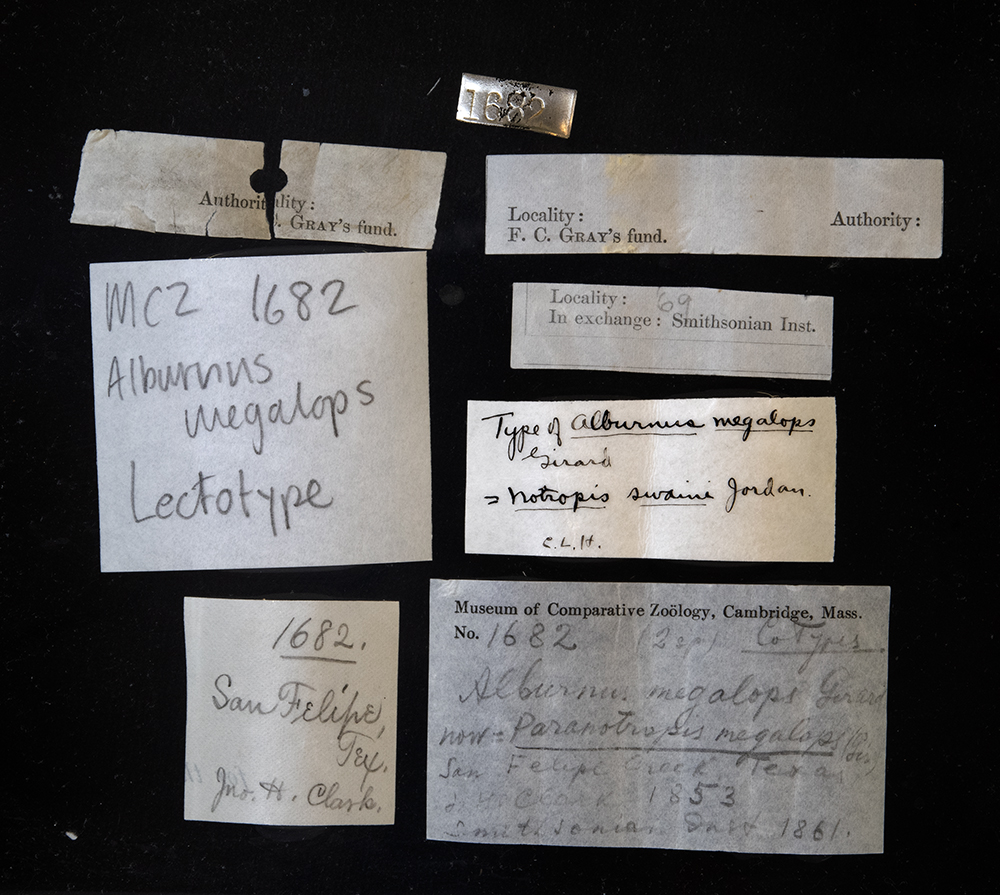 1682
Authorit ality:
. GRAY'S fund.
Locality: Authority:
F. C. GRAY'S fund.
MCZ 1682
Alburnus
megalops
Lectotype
Locality: 69
In exchange: Smithsonian Inst.
Type of Alburnus megalops
Girard
= Notropis swaini Jordan.
C.L.H.
1682.
San Felipe,
Tex.
Jno. H. Clark.
Museum of Comparative Zoölogy, Cambridge, Mass.
No. 1682 (2 sp) Co Types.
Alburnus megalops Girard
now = Paranotropis megalops
San Felipe Creek, Texas
J. H. Clark 1853
Smithsonian Inst 1861.